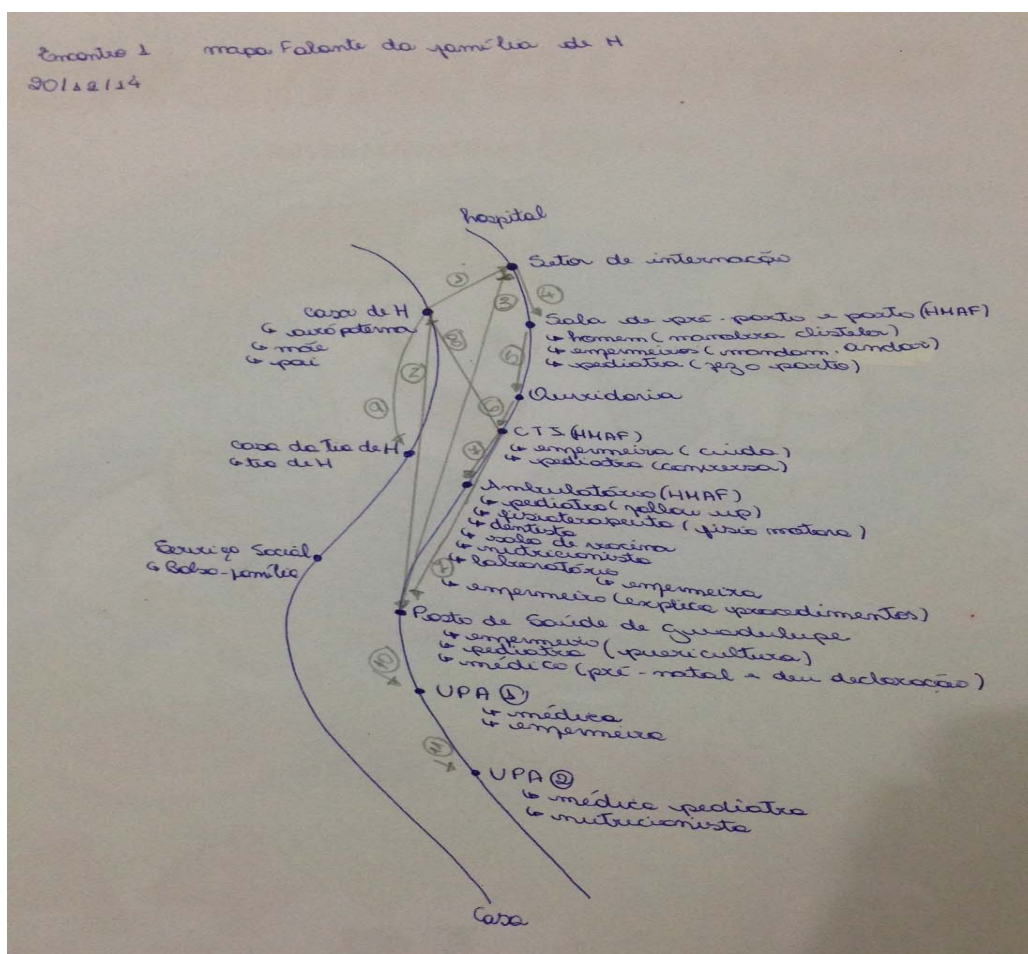 Encontro 1 mapa Falante da família de H
20/12/14
hospital
Setor de internação
casa de H
↳ avó paterna
↳ mãe
↳ pai
Sala de pré-parto e parto (HMAF)
↳ homem (manobra clisteler)
↳ enfermeiros (mandam andar)
↳ pediatra (fez o parto)
Ouvidoria
CTI (HMAF)
↳ enfermeira (cuida)
↳ pediatra (conversa)
casa da tia de H
↳ tia de H
Ambulatório (HMAF)
↳ pediatra (follow up)
↳ fisioterapeuta (fisio motora)
↳ dentista
↳ sala de vacina
↳ nutricionista
↳ laboratório
↳ enfermeira
↳ enfermeiro (explica procedimentos)
Serviço Social
↳ Bolsa-família
Posto de Saúde de Guadulupe
↳ enfermeiro
↳ pediatra (puericultura)
↳ médico (pré-natal e deu declaração)
UPA ①
↳ médica
↳ enfermeira
UPA ②
↳ médica pediatra
↳ nutricionista
Casa
②
③
④
⑤
⑥
⑧
⑨
⑩
⑪